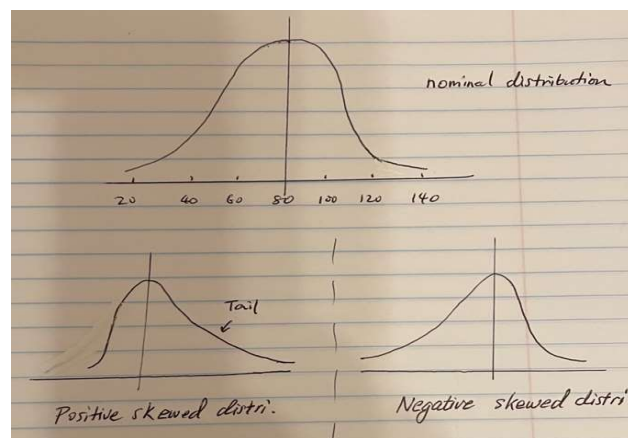 nominal distribution
20 40 60 80 100 120 140
Tail
Positive skewed distri.
Negative skewed distri